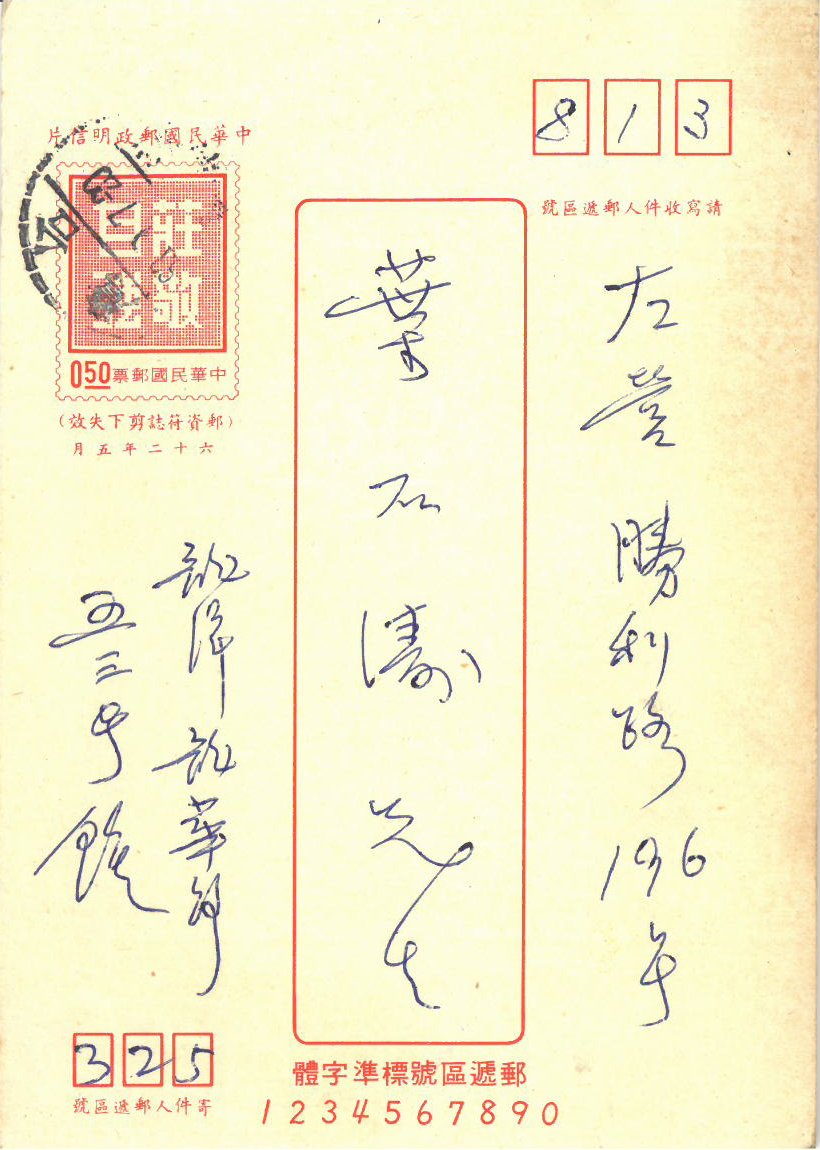 8 1 3
請寫收件人郵遞區號
左營勝利路196号
葉石濤先生
中華民國郵政明信片
莊敬自強
中華民國郵票 050
(郵資符誌剪下失效)
六十二年五月
龍潭龍華路
五三号 鍾
325
寄件人郵遞區號
郵遞區號標準字體
1 2 3 4 5 6 7 8 9 0